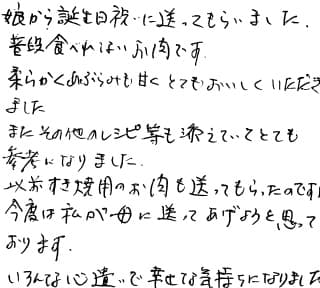 娘から誕生日祝いに送ってもらいました.
普段食べれないお肉です.
柔らかくあぶらみも甘くとてもおいしくいただき
ました
またその他のレシピ等も添えていてとても
参考になりました.
以前すき焼用のお肉も送ってもらったのですが
今度は私が母に送ってあげようと思って
おります.
いろんな心遣いで幸せな気持ちになりました